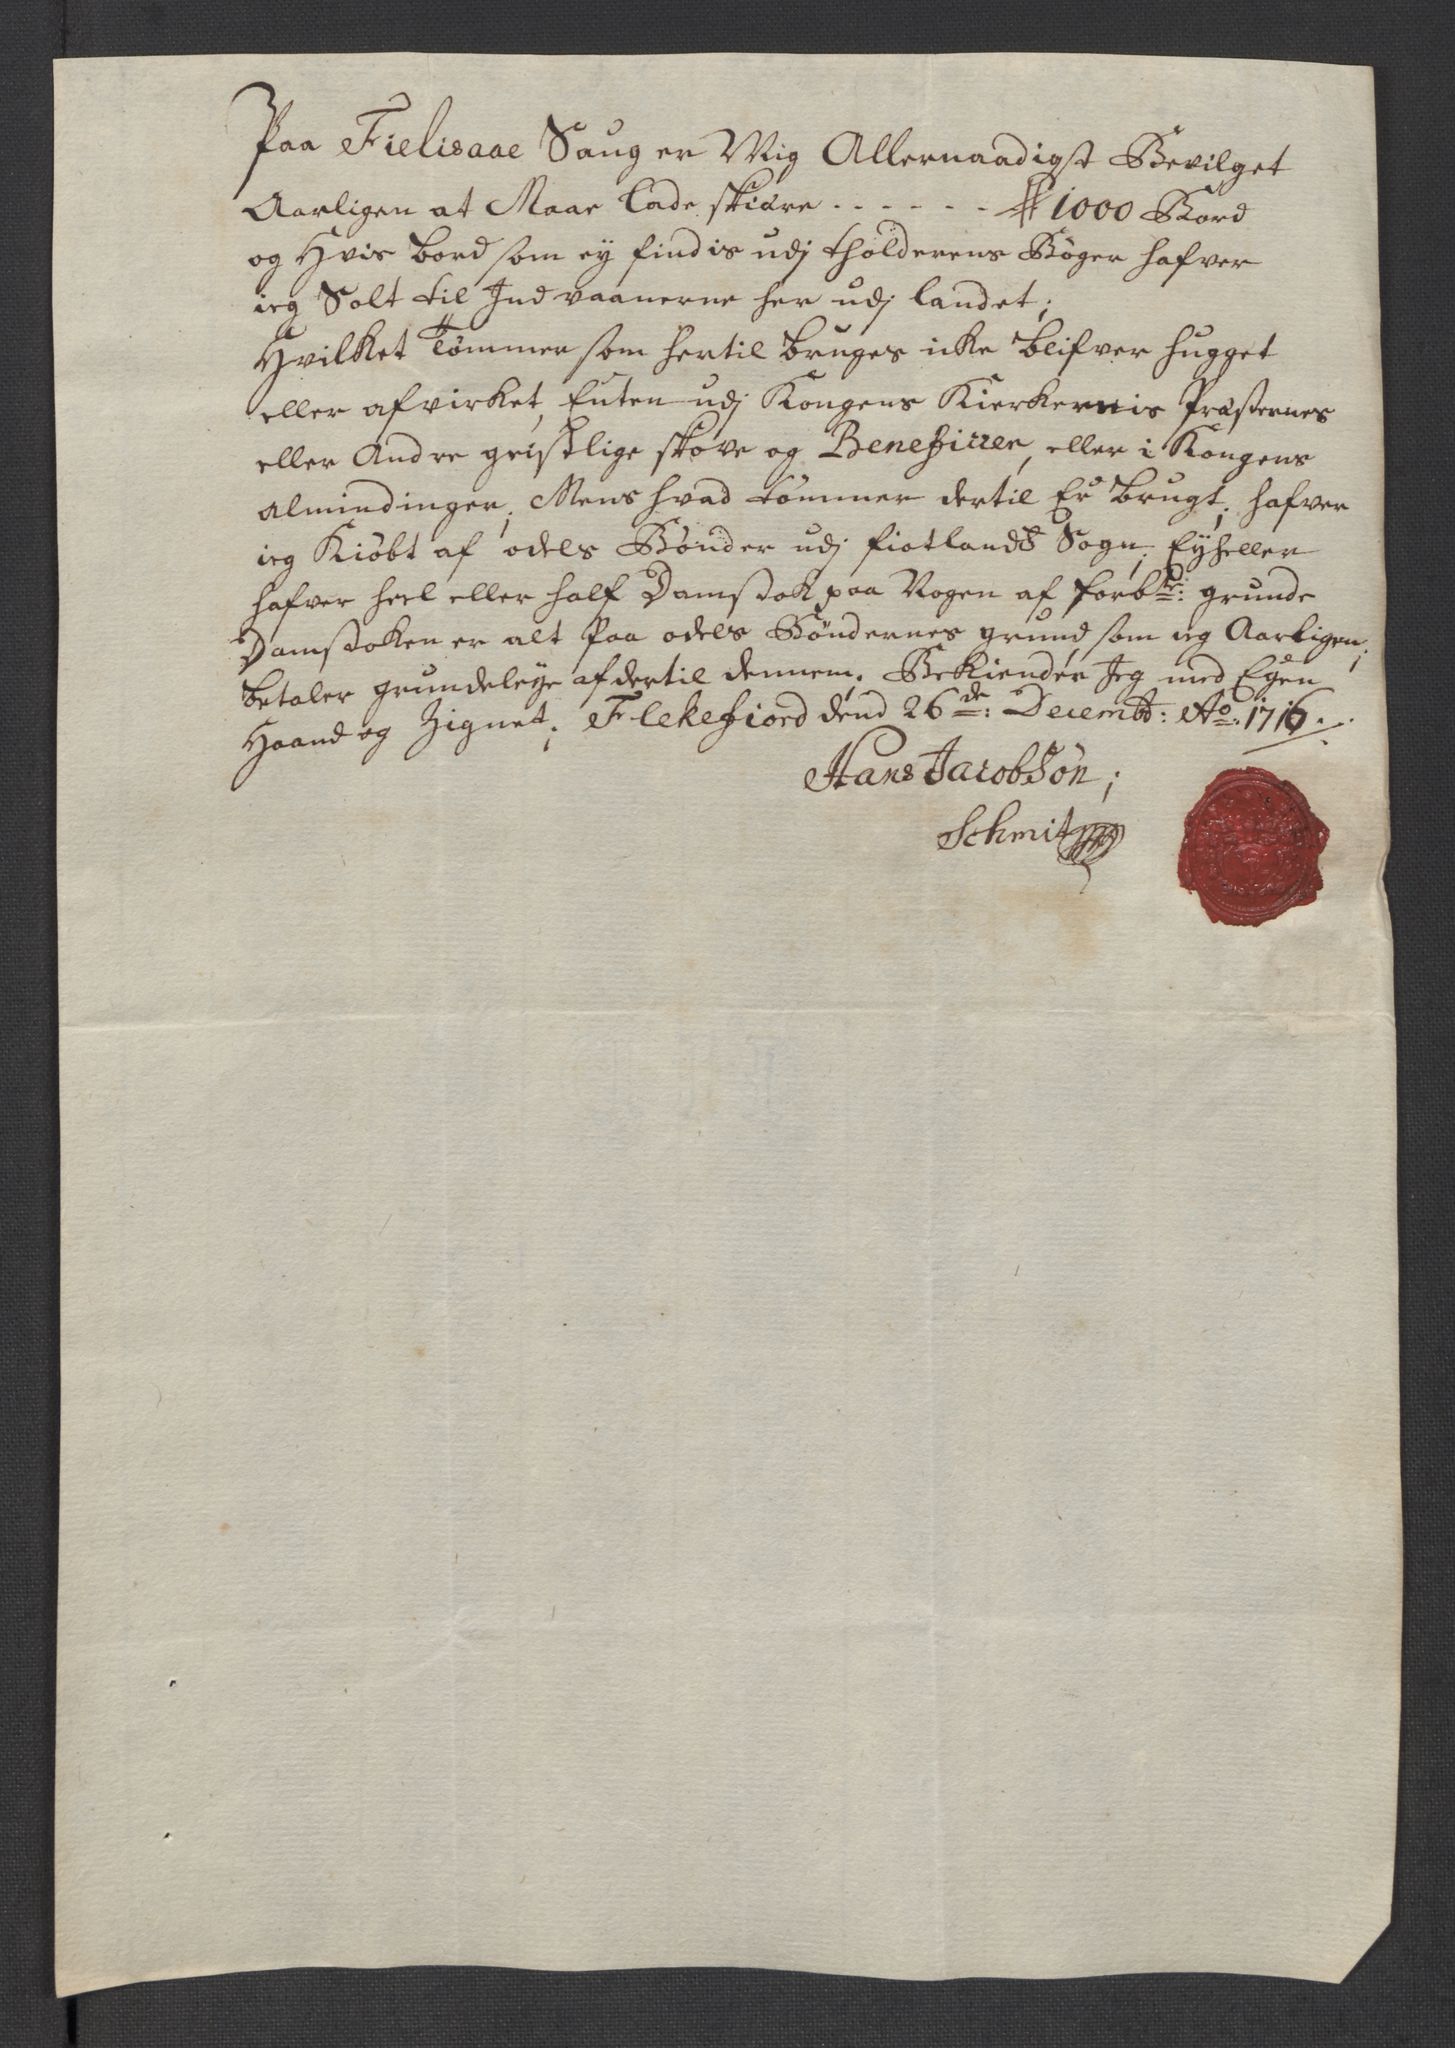 Paa Fielisaae Saug er Mig Allernaadigst Bevilget
Aarligen at Maae lade skiære - - - - - - 1000 Bord
og Hvis bord som ey findis udj tholderens Bøger hafver
ieg Solt til Indvaanerne her udj landet;
Hvilket Tømmer som hertil bruges icke blifver hugget
eller afvirket, Enten udj Kongens Kierkernis Præsternes
eller Andre geistlige skove og Beneficier, eller i Kongens
almindinger; Mens hvad tømmer dertil Er brugt; hafver
ieg Kiøbt af odels Bønder udj fiotlands Sogn; Ey heller
hafver heel eller half Damstok paa Nogen af forbte: grunde
Damstoken er alt Paa odels Bøndernes grund som ieg Aarligen;
betaler grundeleye af dertil dennem. Bekiender Jeg med Egen
Haand og Zignet; Flekefiord dend 26de: Decembr: Ao: 1716.
Hans Jacobsøn;
Schmit